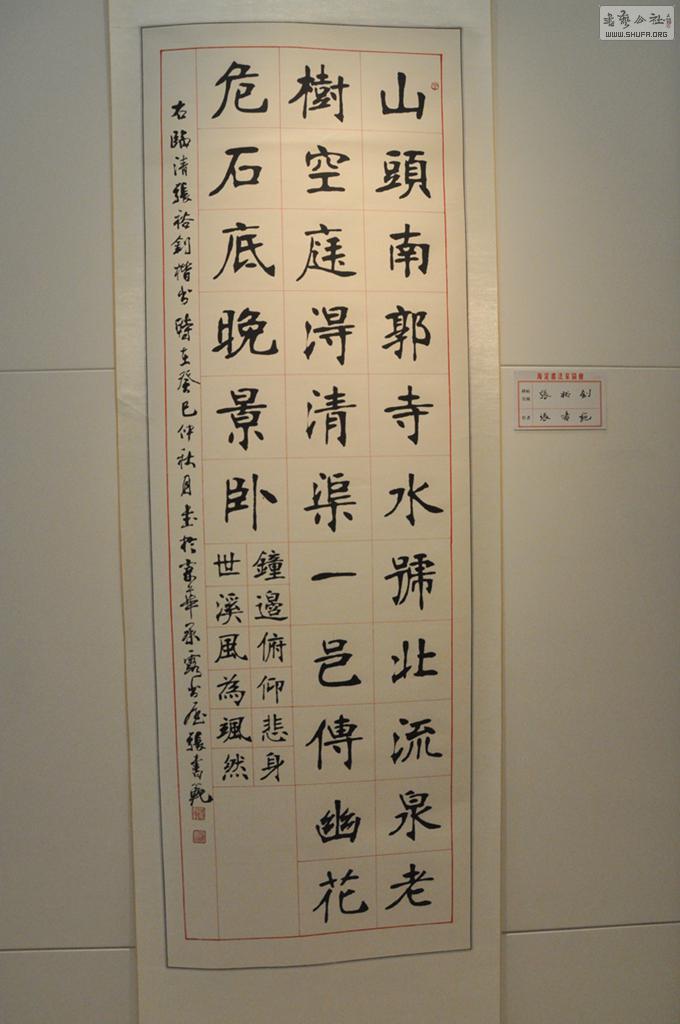 山頭南郭寺水號北流泉老
樹空庭淂清渠一邑傳幽花
危石底晚景卧
鐘邊俯仰悲身
世溪風為颯然
右臨清張裕釗楷書時在癸巳仲秋月書於京華承露書屋張書範
海淀書法家協會
張裕釗
作者 張書範
書藝公社
WWW.SHUFA.ORG